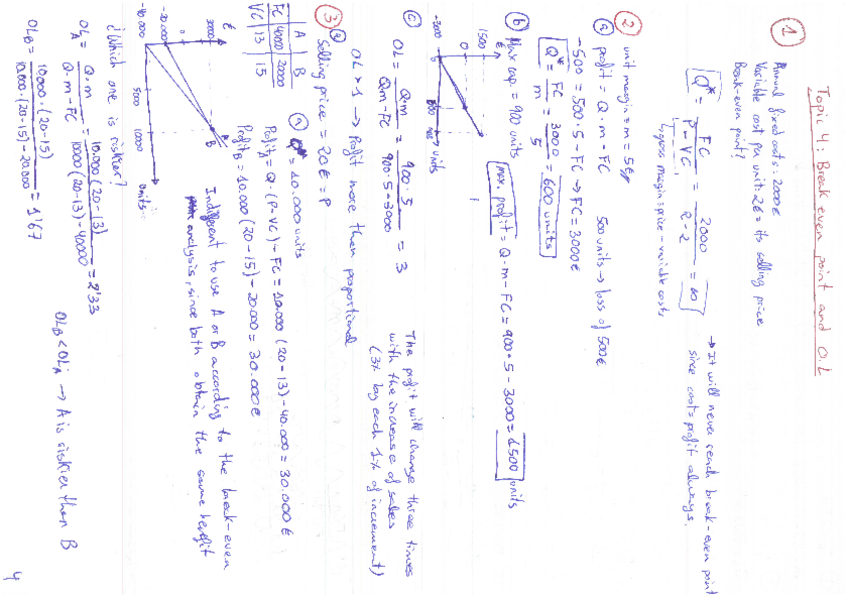 Topic 4: Break even point and O.L
1
Annual fixed costs: 2000€
Variable cost per unit: 2€ = its selling price
Break-even point?
Q* = FC / P-VC = 2000 / 2-2 = ∞
→ It will never reach break-even point
since costs = profit always.
gross margin = price - variable costs
2
unit margin = m = 5€
a) profit = Q · m - FC 500 units → loss of 500€
-500 = 500 · 5 - FC → FC = 3000€
Q* = FC / m = 3000 / 5 = 600 units
b) Max cap. = 900 units
max. profit = Q · m - FC = 900 · 5 - 3000 = 1500 units
1500
0
units
c) OL = Q·m / Q·m-FC = 900·5 / 900·5-3000 = 3
The profit will change three times
with the increase of sales
(3% by each 1% of increment)
OL > 1 → Profit more than proportional
3
Selling price = 20€ = P
A B
FC 40000 20000
VC 13 15
a) Q* = 10.000 units
Profit A = Q · (P-VC) - FC = 10.000 (20-13) - 40.000 = 30.000€
Profit B = 10.000 (20-15) - 20.000 = 30.000€
Indifferent to use A or B according to the break-even
analysis, since both obtain the same benefit
30000
0
-20.000
-40.000
5000
10000
units
B
A
¿Which one is riskier?
OL A = Q·m / Q·m-FC = 10.000 (20-13) / 10000 (20-13) - 40000 = 2'33
OL B = 10.000 · (20-15) / 10.000 · (20-15) - 20.000 = 1'67
OL B < OL A → A is riskier than B
4